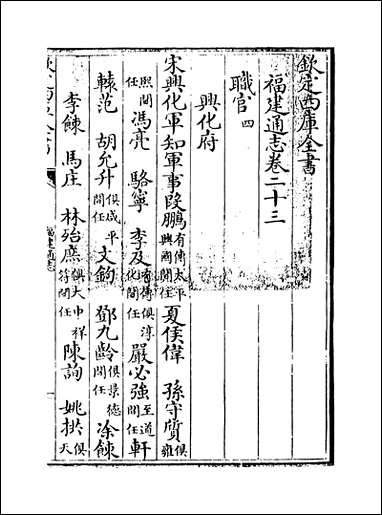 欽定四庫全書
福建通志卷二十三
職官四
興化府
宋興化軍知軍事段鵬有傳太平興國間任夏侯偉 孫守質俱雍
熙間任馮亮 駱寧 李及有傳俱淳化間任嚴必強至道間任軒
轅范 胡允升俱咸平間任文鈞 鄧九齡俱景德間任凃錬
李餗 馬庄 林殆庶俱大中祥符間任陳詢 姚拱俱天
福建通志